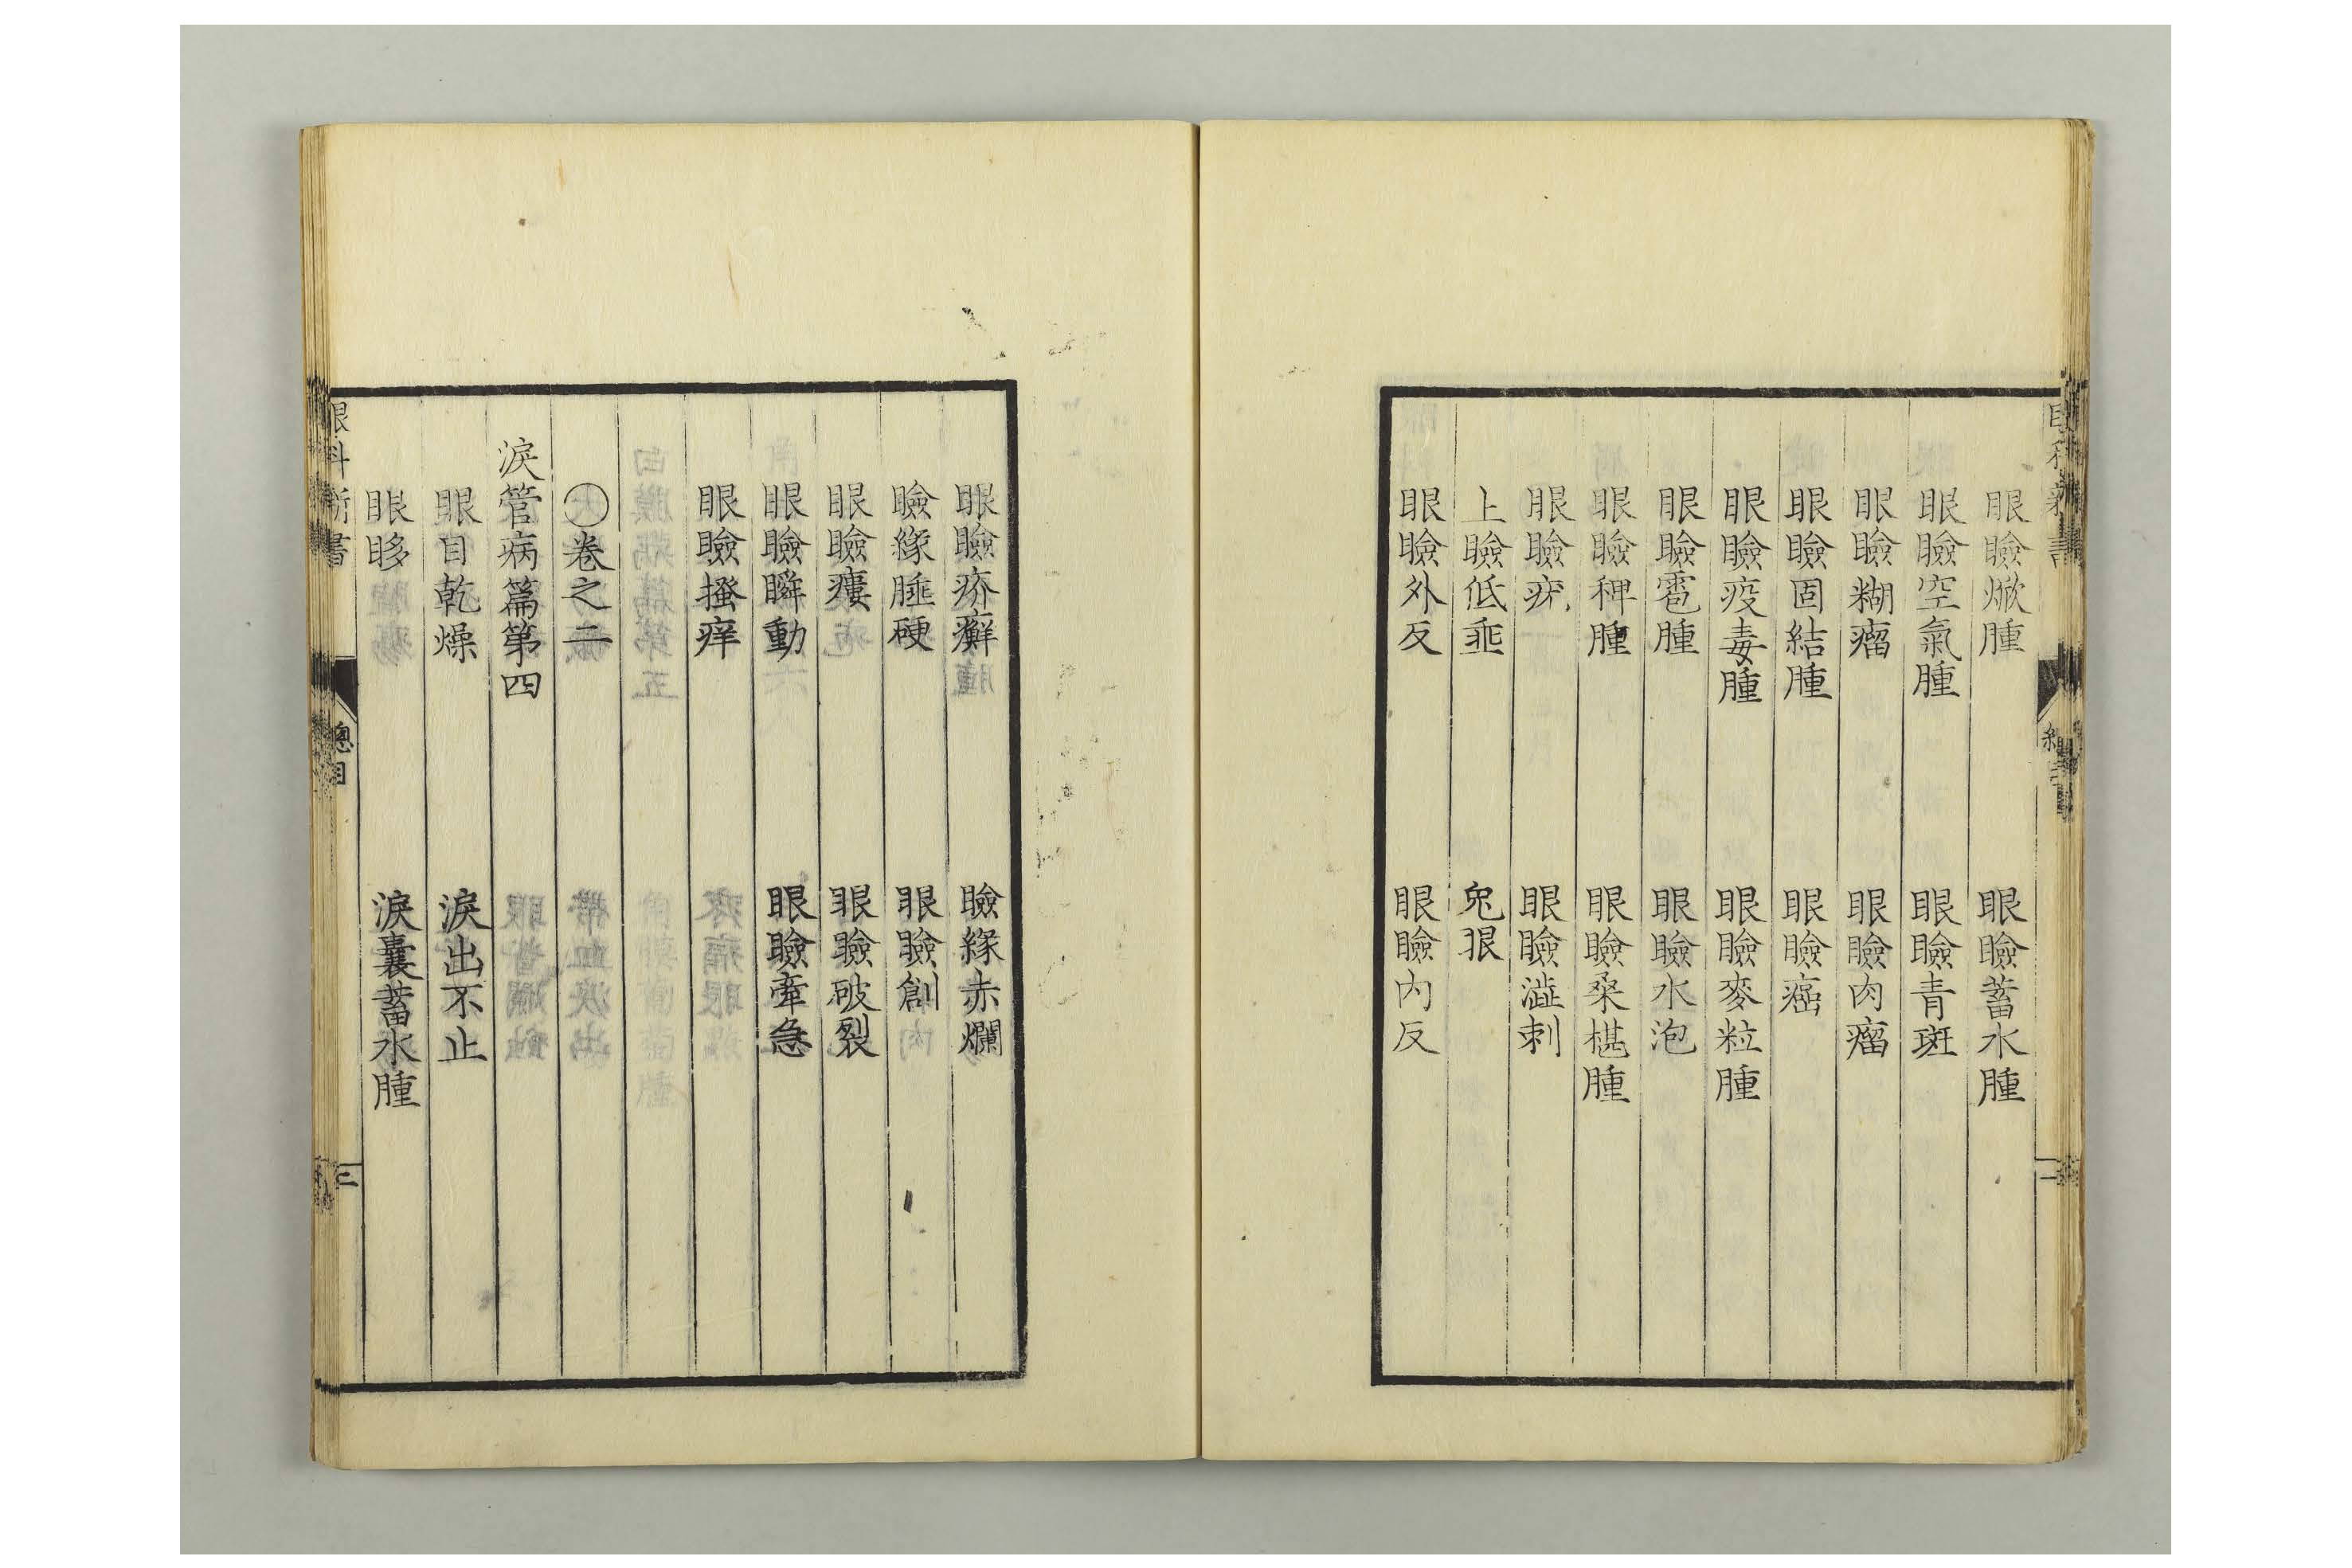 眼瞼焮腫　眼瞼蓄水腫
眼瞼空氣腫　眼瞼青斑
眼瞼糊瘤　眼瞼肉瘤
眼瞼固結腫　眼瞼癌
眼瞼疫毒腫　眼瞼麥粒腫
眼瞼雹腫　眼瞼水泡
眼瞼稗腫　眼瞼桑椹腫
眼瞼疣　眼瞼澁刺
上瞼低垂　兔眼
眼瞼外反　眼瞼内反
眼瞼疥癬　瞼緣赤爛
瞼緣腄硬　眼瞼創
眼瞼瘻　眼瞼破裂
眼瞼瞬動　眼瞼牽急
眼瞼搔痒
〇卷之二
淚管病篇第四
眼目乾燥　淚出不止
眼眵　淚囊蓄水腫
眼科新書
總目
三